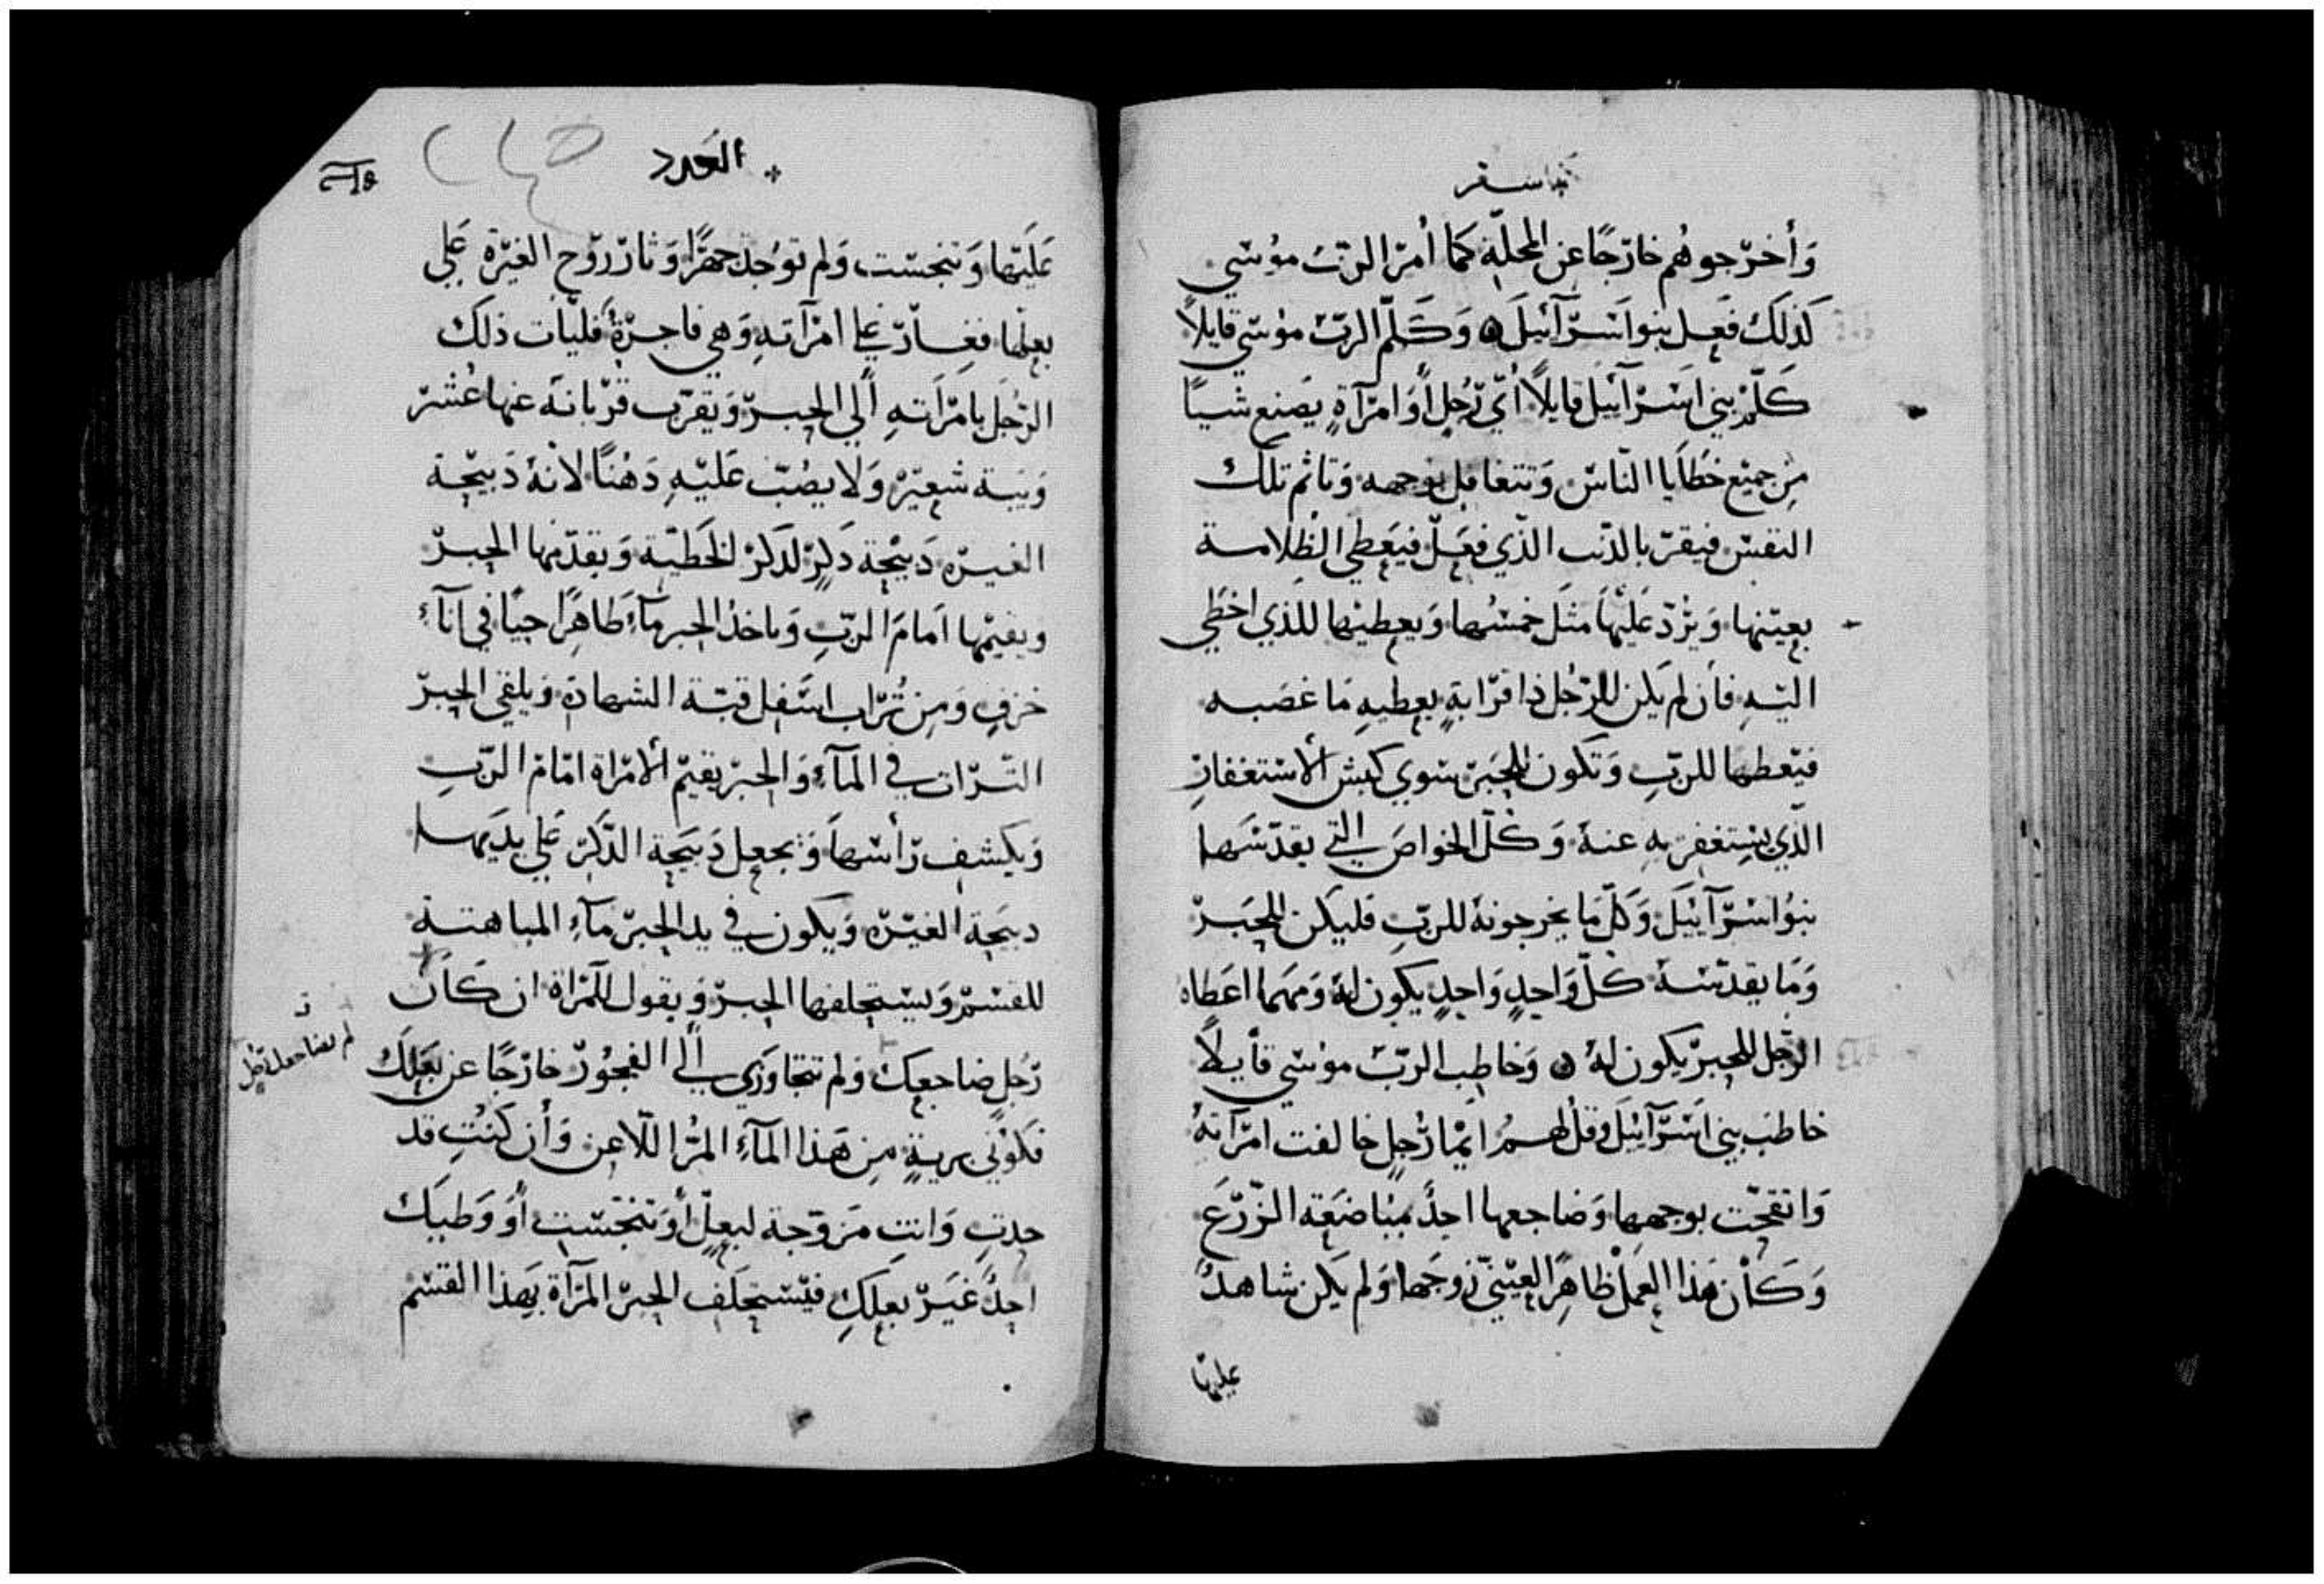 سفر
وَأخرَجوهُم خارَجًا عن المحلّة كمَا أمرَ الربّ موُسَي
كَذلكَ فَعل بنوا اسَرآئيلَ ۞ وَكَلّم الربّ موسَي قايلاً
كَلّم بني اسَرآئيل قايلاً أيّ رَجُلٍ أوَ امرَآةٍ يَصنع شيًا
مِن جميع خَطايا النّاسَ وَتتغافل بوجهه وَتاثم تلكَ
النفسَ فيقرّ بالذنب الذّي فعَلَ فيَعطي الظلامة
بعيَنها وَيزُدّ عَليَها مثَل خمسُها وَيعطيها للذي اخطَي
اليَهِ فأن لم يَكن للرّجُل ذا قرَابةٍ يعطيهِ مَا غصَبه
فيَعطها للربِ وَتكون للحَبرَ سَوي كبش الأستغفارِ
الذّي يستغفر بهِ عنهُ وَكُلّ الخواصَ التي يقدّسَها
بنوُا اسَرآئيلَ وَكلّ مَا يخرجونهُ للربِ فليَكن للحَبرَ
وَمَا يقدّسَهُ كُلّ وَاحدٍ وَاحدٍ يكون لهُ وَمَهمَا اعَطاه
الرجَل للحبرَ يكون لهُ ۞ وَخاطب الربّ موُسَي قأيلاً
خاطب بني اسَرآئيلَ وَقل لهمُ ايمّا رَجُلٍ خالفت امرَآتهُ
وَاتقحّت بوجهها وَضاجعها احدٌ بمبُاضعَة الزّرَعَ
وَكَأن هَذا العمَل ظاهِرًا لعيَنيّ زوجَها وَلم يَكن شاهدٌ
عليها
العَدد
عَليَها وَتنجسَت وَلم توُجَد جهرًا وَثارَ رَوّح الغيَرة عَلي
بعلها فغارَ علي امرَآتهِ وَهي فاجرَةٌ فليَأت ذلكَ
الرَجُل بامرَاتهِ ألي الحبرَ وَيقرّب قرّبانهُ عنها عُشرَ
وَيَبة شعيَرَ وَلا يصُبّ عَليَهِ دَهُنًا لانهُ ذَبيحَة
الغيرَه ذَبيحَة ذَكرٍ لذكرَ لخَطيّة وَيقدّمها الحبرَ
ويقيمْها اَمامَ الربِ وَياخذُ الحبر مآءً طاهِرًا حيًا في انآءِ
خزفٍ وَمِن تُرَاب اسَفل قبّة الشهادة وَيلقي الحبرَ
التّرَاب في المَآءِ وَالحبرَ يقيمَ الأمرَاة امَام الربِ
وَيكشف رَأسَها وَيجعل ذَبيَحة الذكَرَ عَلي يدَيها
دبيَحة الغيَرَه وَيكون في يد الحبرَ مآءِ المباهتة
للقسَم وَيسَتحلفها الحبرَ وَيقول للمَرَاة ان كَان
رَجُلٍ ضاجعكَ وَلم تتجَاوَزَي إلي الفجُورَ خارَجًا عن بَعَلكَ
لم يضاجعك رجُل
فكوُنَي بريةٍ مِن هَذا المآءِ المُرّ اللّاعن وَأن كنُتِ قد
حدتِ وَانتِ مزَوّجة لبعلٍ أوَ تنجّسَتِ أوَ وَطيَكَ
احدٌ غيَرَ بعلكِ فيَسَتحلَف الحبرَ المرَآة بهَذا القسَم